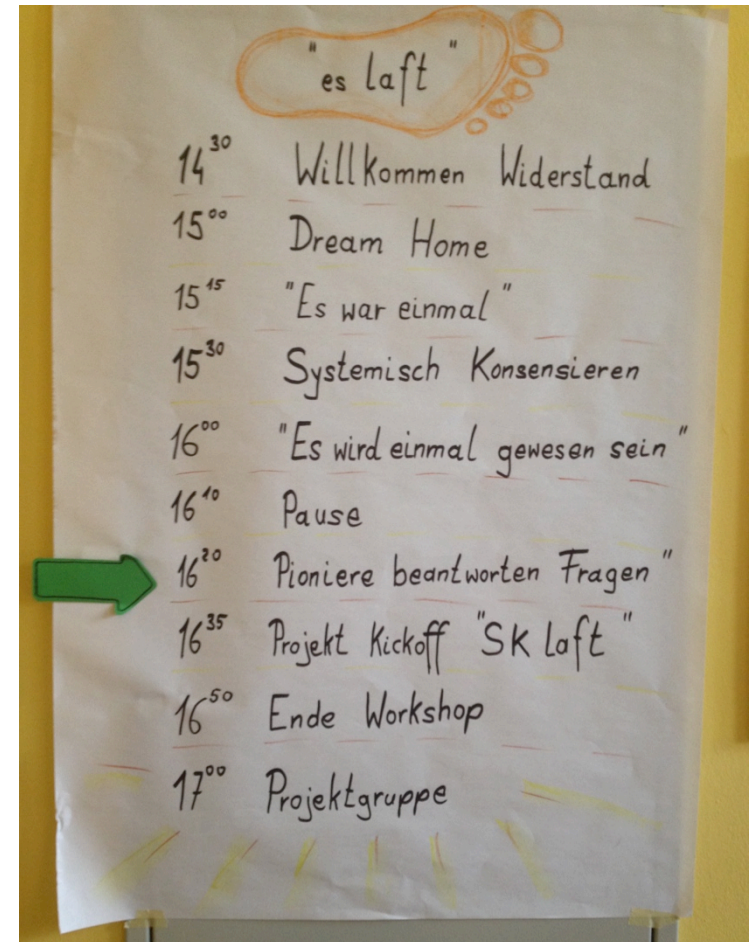 "es laft"
14³⁰ Willkommen Widerstand
15⁰⁰ Dream Home
15¹⁵ "Es war einmal"
15³⁰ Systemisch Konsensieren
16⁰⁰ "Es wird einmal gewesen sein"
16¹⁰ Pause
16²⁰ Pioniere beantworten Fragen"
16³⁵ Projekt Kickoff "SK laft"
16⁵⁰ Ende Workshop
17⁰⁰ Projektgruppe